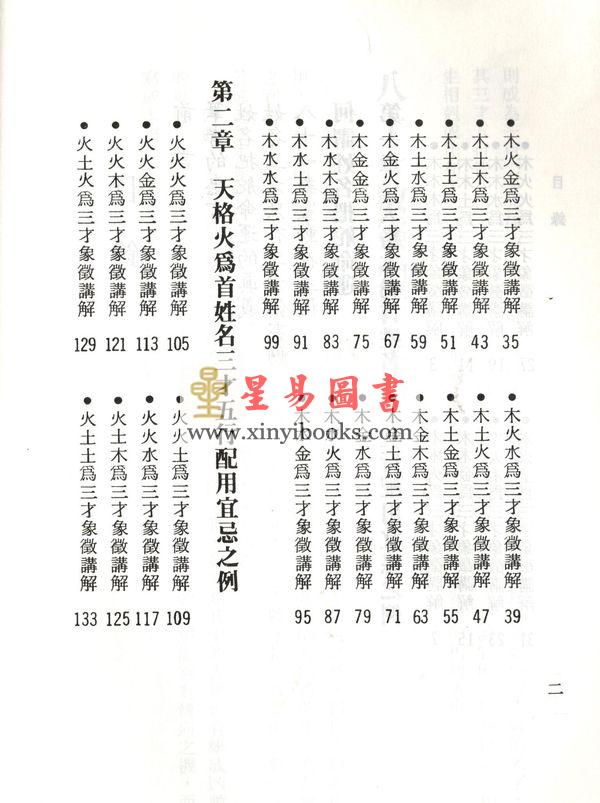 目錄
●木火金為三才象徵講解 35
●木火水為三才象徵講解 39
●木土木為三才象徵講解 43
●木土火為三才象徵講解 47
●木土土為三才象徵講解 51
●木土金為三才象徵講解 55
●木土水為三才象徵講解 59
●木金木為三才象徵講解 63
●木金火為三才象徵講解 67
●木金土為三才象徵講解 71
●木金金為三才象徵講解 75
●木金水為三才象徵講解 79
●木水木為三才象徵講解 83
●木水火為三才象徵講解 87
●木水土為三才象徵講解 91
●木水金為三才象徵講解 95
●木水水為三才象徵講解 99
第二章 天格火為首姓名三才五行配用宜忌之例
●火火火為三才象徵講解 105
●火火土為三才象徵講解 109
●火火金為三才象徵講解 113
●火火水為三才象徵講解 117
●火火木為三才象徵講解 121
●火土木為三才象徵講解 125
●火土火為三才象徵講解 129
●火土土為三才象徵講解 133
二
星易圖書
www.xinyibooks.com